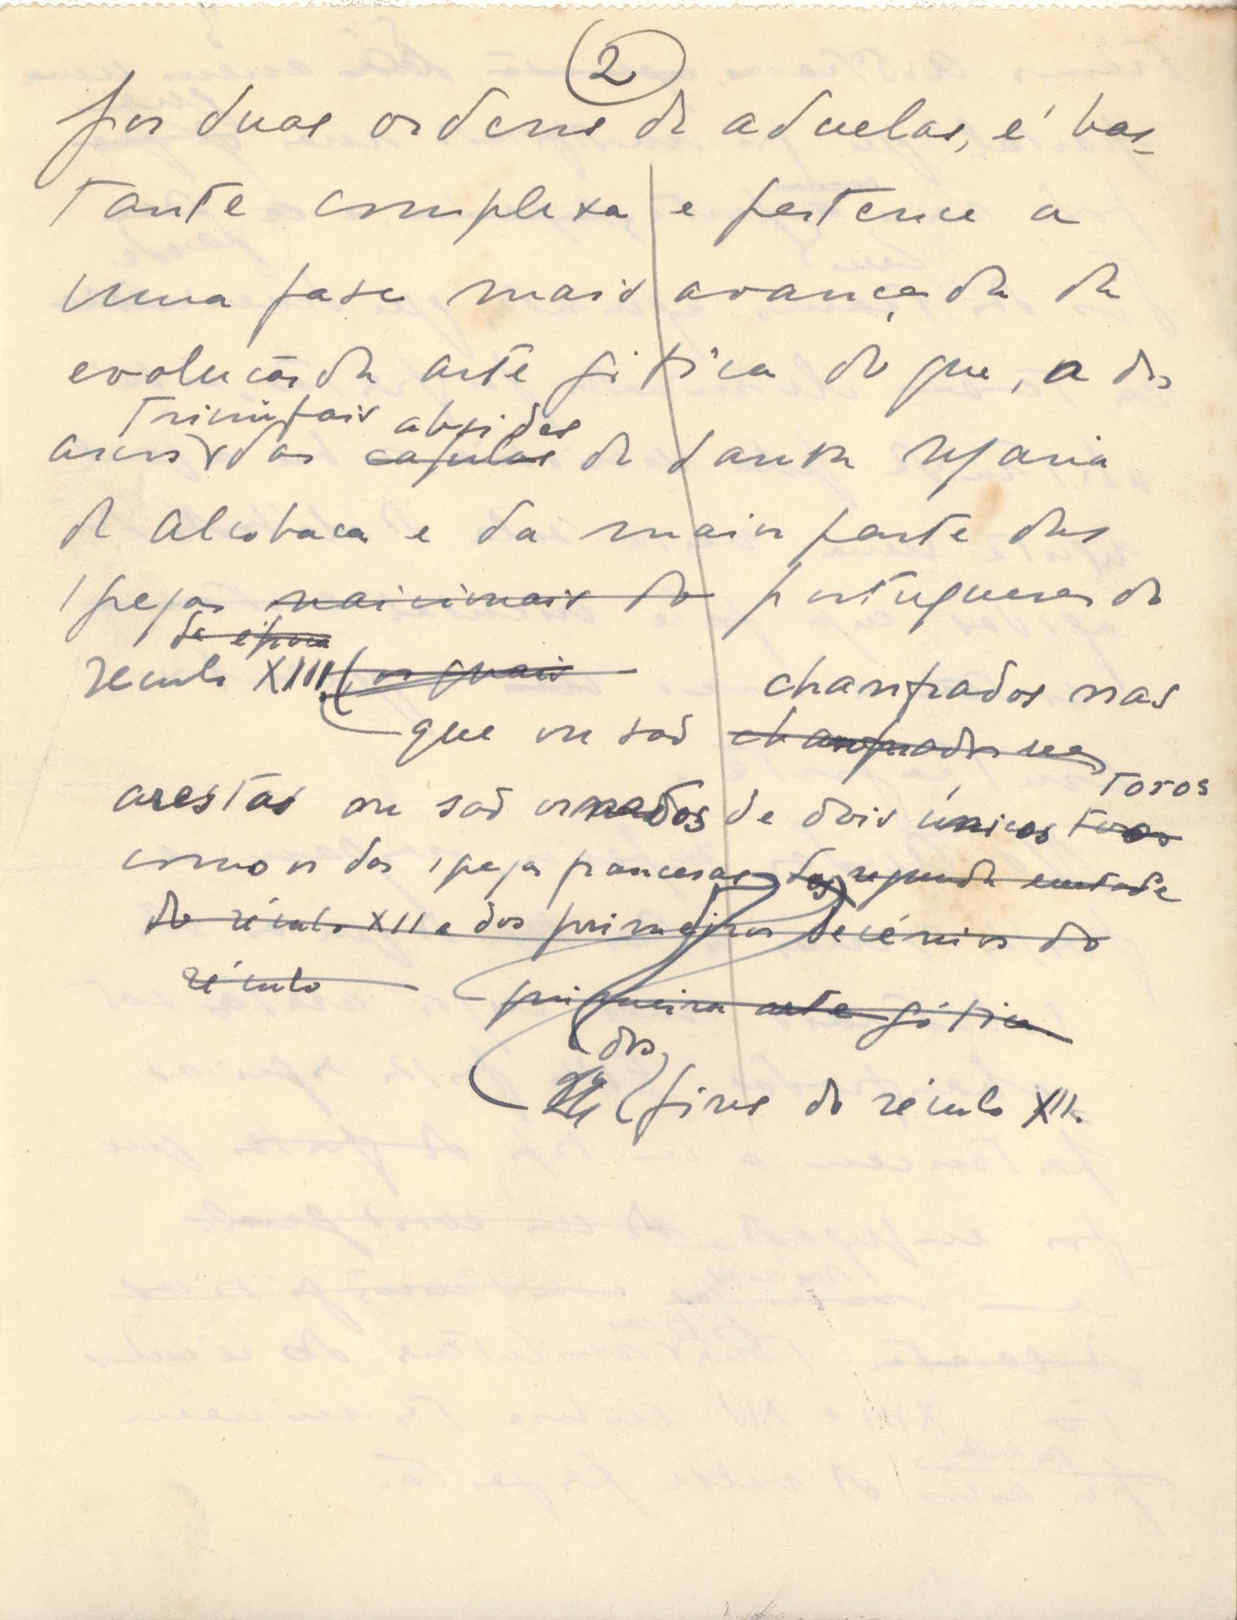 2
por duas ordens de aduelas, é bas-
tante complexa e pertence a
uma fase mais avançada da
evolução da arte gótica do que, a dos
triunfais absides
arcos das capelas de Santa Maria
de Alcobaça e da maior parte das
igrejas nacionais do portuguesas do
da época
século XIII, os quais
chanfrados nas
que ou são chanfrados nas
arestas ou são ornados de dois únicos toros
toros
como os das igrejas francesas da segunda metade
do século XII e dos primeiros decénios do
século
primeira arte gótica
dos
fins do século XII.